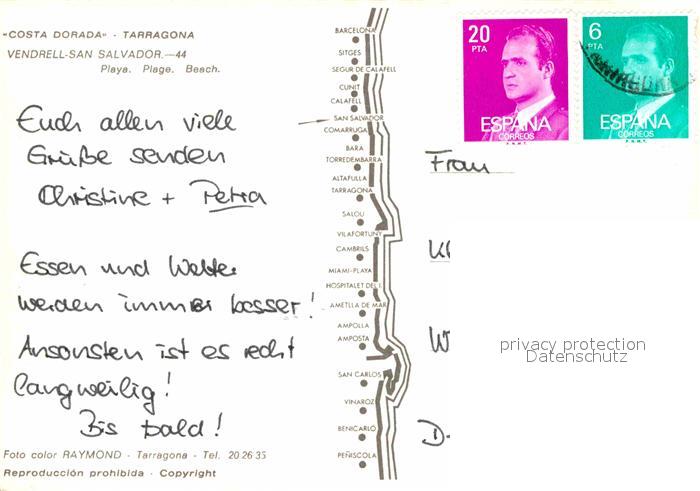 "COSTA DORADA" - TARRAGONA
VENDRELL-SAN SALVADOR.—44
Playa. Plage. Beach.
Euch allen viele
Grüße senden
Christine + Petra
Essen und Wetter
werden immer besser!
Ansonsten ist es recht
langweilig!
Bis bald!
Foto color RAYMOND - Tarragona - Tel. 20 26 35
Reproducción prohibida - Copyright
BARCELONA
SITGES
SEGUR DE CALAFELL
CUNIT
CALAFELL
SAN SALVADOR
COMARRUGA
BARA
TORREDEMBARRA
ALTAFULLA
TARRAGONA
SALOU
VILAFORTUNY
CAMBRILS
MIAMI-PLAYA
HOSPITALET DEL I.
AMETLLA DE MAR
AMPOLLA
AMPOSTA
SAN CARLOS
VINAROZ
BENICARLO
PEÑISCOLA
20
PTA
ESPAÑA
CORREOS
F.N.M.T.
6
PTA
ESPAÑA
CORREOS
F.N.M.T.
Frau
privacy protection
Datenschutz
D-